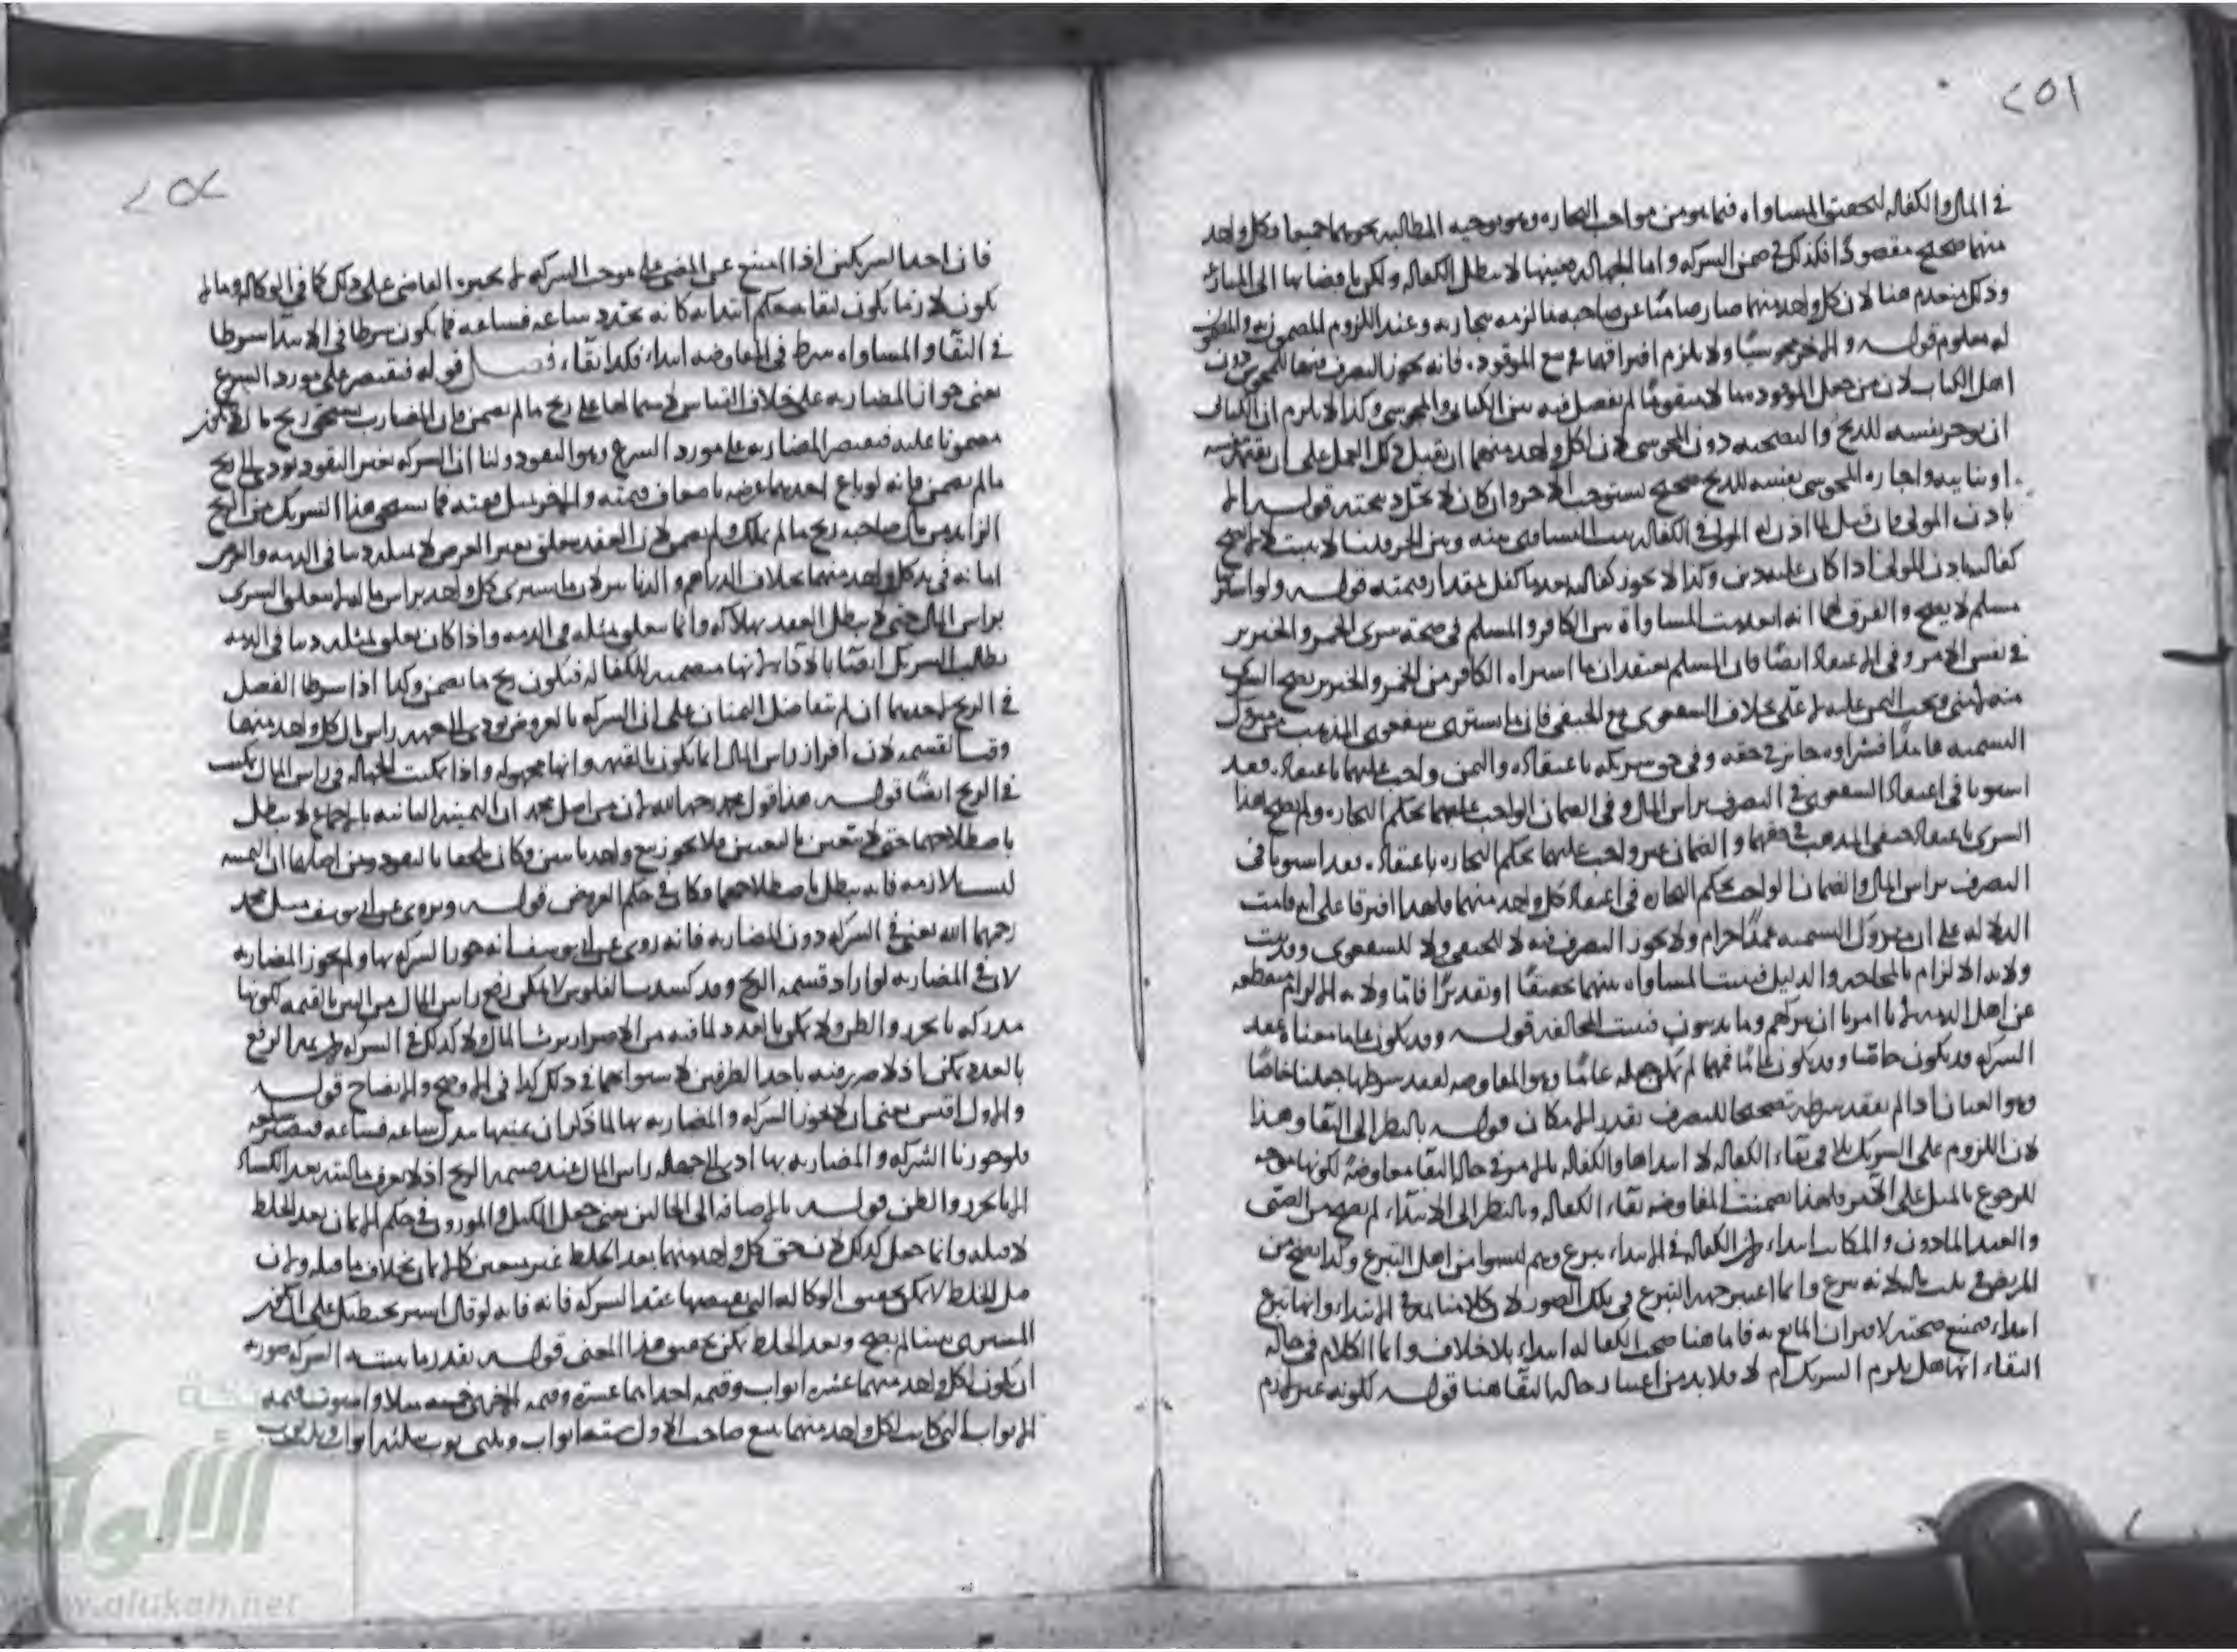 ٢٥١
في المال والكفالة لتحقق المساواة فيما هو من مواجب التجارة وهو توجيه المطالبة نحوهما جميعا وكل واحد
منهما صحيح مقصودا فكذلك في ضمن الشركة واما الجهالة بعينها لا تبطل الكفالة ولكن بافضائها الى المنازعة
وذلك منعدم هنا لان كل واحد منهما صار ضامنا عن صاحبه ما لزمه بتجارته وعند اللزوم المضمون به والمضمون
له معلوم قوله والاخر مجوسيا ولا يلزم افتراقهما في بيع الموقوذة فانه يجوز التصرف فيها للمجوس دون
اهل الكتاب لان من جعل الموقوذة مالا متقوما لم يفصل فيه بين الكتابي والمجوسي وكذا لا يلزم ان الكتابي
ان يؤجر نفسه للذبح والتضحية دون المجوسي لان كل واحد منهما ان يتقبل ذلك العمل على ان يقيمه بنفسه
او نائبه واجارة المجوسي نفسه للذبح صحيح يستوجب الاجر وان كان لا تحل ذبيحته قوله
باذن المولى فان قيل لما اذن له المولى في الكفالة
كفالته باذن المولى اذا كان عليه دين وكذا لا يجوز كفالته بعد ما كفل بمقدار قيمته قوله ولو اسلم
مسلم لا يصح والفرق لهما انه انعدمت المساواة بين الكافر والمسلم في صحة شرى الخمر والخنزير
في نفس الامر وفي الاعتقاد ايضا فان المسلم يعتقد ان ما اشتراه الكافر من الخمر والخنزير يصح
التسمية عامدا فشراؤه جائز في حقه وفي حق شريكه باعتقاده والثمن واجب عليهما باعتقاده فقد
استويا في اعتقاد الشفعوي في التصرف براس المال وفي الضمان الواجب عليهما بحكم التجارة ولم يصح هذا
الشرى باعتقاد حنفي المذهب في حقهما والضمان غير واجب عليهما بحكم التجارة باعتقاده فقد استويا في
التصرف براس المال والضمان الواجب بحكم التجارة في اعتقاد كل واحد منهما فلهذا افترقا على انه قامت
الدلالة على ان متروك التسمية عمدا حرام ولا يجوز التصرف فيه لا للحنفي ولا للشفعوي وقد ثبت
ولاية الالزام بالمحاجة والدليل فيثبت المساواة بينهما تحقيقا او تقديرا فاما ولاية الالزام منقطعة
عن اهل الذمة لانا امرنا ان نتركهم وما يدينون فيثبت المخالفة قوله وقد يكون عاما معناه عقد
الشركة قد يكون خاصا وقد يكون عاما فمهما لم يكن جعله عاما وهو المفاوضة لفقد شرطها جعلنا خاصا
وهو العنان اذا لم يفقد شرطه تصحيحا للتصرف بقدر الامكان قوله بالنظر الى البقاء وهذا
لان اللزوم على الشريك يلاقي بقاء الكفالة لا ابتداءها والكفالة بالامر في حالة البقاء معاوضة لكونها موجبة
للرجوع بالمثل على الاخر فلهذا تضمنت المفاوضة بقاء الكفالة وبالنظر الى الابتداء لم يصح من الصبي
والعبد الماذون والمكاتب ابتداء لان الكفالة في الابتداء تبرع وهم ليسوا من اهل التبرع وكذا يصح من
المريض في ثلث ماله لانه تبرع وانما اعتبر جهة التبرع في تلك الصور لان كلامنا ثمة في الابتداء وانها تبرع
ابتداء فيمتنع صحته لاقتران المانع به فاما هنا صحت الكفالة ابتداء بلا خلاف وانما الكلام في حالة
البقاء انها هل يلزم الشريك ام لا فلا بد من اعتبار حالة البقاء هنا قوله لكونه غير لازم
٢٥٢
فان احد الشريكين اذا امتنع عن المضي على موجب الشركة لم يجبره القاضي على ذلك كما في الوكالة وما لم
يكون لازما يكون لبقائه حكم ابتدائه كانه يتجدد ساعة فساعة فما يكون شرطا في الابتداء شرطا
في البقاء والمساواة شرط في المفاوضة ابتداء فكذا بقاء فصل قوله فيقتصر على مورد الشرع
يعني جواز المضاربة على خلاف القياس لاشتمالها على ربح ما لم يضمن فان المضارب يستحق ربح ما لم يكن
مضمونا عليه فيقتصر المضاربة على مورد الشرع وهو النقود ولنا ان الشركة بغير النقود تودي الى ربح
ما لم يضمن فانه لو باع احدهما عرضه باضعاف قيمته والاخر بمثل قيمته فما يستحق هذا الشريك من الربح
الزائد من مال صاحبه ربح ما لم يملك ولم يضمن لان العقد يتعلق بعين العرض لا بمثله دينا في الذمة والعرض
امانة في يد كل واحد منهما بخلاف الدراهم والدنانير لان ما يشتري كل واحد براس ماله لا يتعلق الشرى
براس المال حتى لا يبطل العقد بهلاكه وانما يتعلق بمثله في الذمة واذا كان يتعلق بمثله دينا في الذمة
يطالب الشريك ايضا بالاداء لانها متضمنة للكفالة فيكون ربح ما يضمن وكذا اذا شرطا الفضل
في الربح لاحدهما ان لم يتفاضل الثمنان على ان الشركة بالعروض تودي الى جهالة راس مال كل واحد منهما
وقت القسمة لان افراز راس المال انما يكون بالقيمة وانها مجهولة واذا تمكنت الجهالة في راس المال تمكنت
في الربح ايضا قوله هذا قول محمد رحمه الله لان من اصل محمد ان الثمنية الثابتة بالاجماع لا تبطل
باصطلاحهما حتى لا تتعين بالتعيين فلا يجوز بيع واحد باثنين فكان ملحقا بالنقود ومن اصلهما ان الثمنية
ليست لازمة فانه يبطل باصطلاحهما فكان في حكم العروض قوله ويروى عن ابي يوسف مثل محمد
رحمهما الله يعني في الشركة دون المضاربة فانه روى عن ابي يوسف انه جوز الشركة بها ولم يجوز المضاربة
لان في المضاربة لو اراد قسمة الربح وقد كسدت الفلوس لا يمكن رفع راس المال من البين بالقيمة لكونها
مدركة بالحزر والظن ولا يمكن بالعدد لما فيه من الاضرار برب المال ولا كذلك في الشركة لان عند الرفع
بالعدد يمكن اذ لا ضرر فيه باحد الطرفين لاستوائهما في ذلك كذا في الاوضح والايضاح قوله
والاول اقيس يعني ان لا يجوز الشركة والمضاربة بها لما ذكر ان ثمنيتها تتبدل ساعة فساعة
فلو جوزنا الشركة والمضاربة بها ادى الى جهالة راس المال عند قسمة الربح اذ لا يعرف ماليته بعد الكساد
الا بالحزر والظن قوله بالاضافة الى الحالين يعني جعل المكيل والموزون في حكم الاثمان بعد الخلط
لا قبله وانما جعل كذلك لان حق كل واحد منهما بعد الخلط غير متعين كالاثمان بخلاف ما قبله ولان
قبل الخلط لا يمكن تحقيق الوكالة التي يقتضيها عقد الشركة فانه لو قال اشتر بحنطتك على ان يكون
المشترى بيننا لم يصح وبعد الخلط يمكن تحقيق هذا المعنى قوله بقدر ما يثبت به الشركة صورته
ان يكون لكل واحد منهما عشرة اثواب وقيمة احدهما عشرة وقيمة الاخر خمسة مثلا واستوت قيمة
الاثواب التي كانت لكل واحد منهما يبيع صاحب الاول ستة اثواب وثلثي ثوب بثلثة اثواب وثلث ثوب